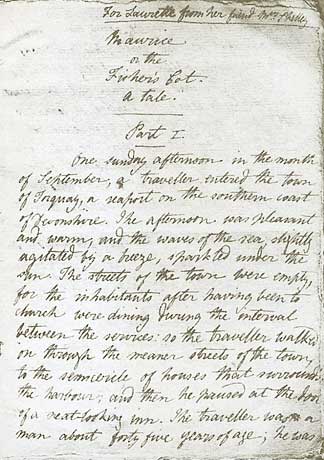 For Laurette from her friend Mrs Shelley
Maurice
or the
Fisher's Cot.
a tale.
Part I
One sunday afternoon in the month
of September, a traveller entered the town
of Torquay, a seaport on the southern coast
of Devonshire. The afternoon was pleasant
and warm, and the waves of the sea, slightly
agitated by a breeze, sparkled under the
sun. The streets of the town were empty,
for the inhabitants after having been to
church were dining during the interval
between the services: so the traveller walked
on through the meaner streets of the town,
to the semicircle of houses that surrounds
the harbour; and then he paused at the door
of a neat-looking inn. The traveller was a
man about forty five years of age; he was